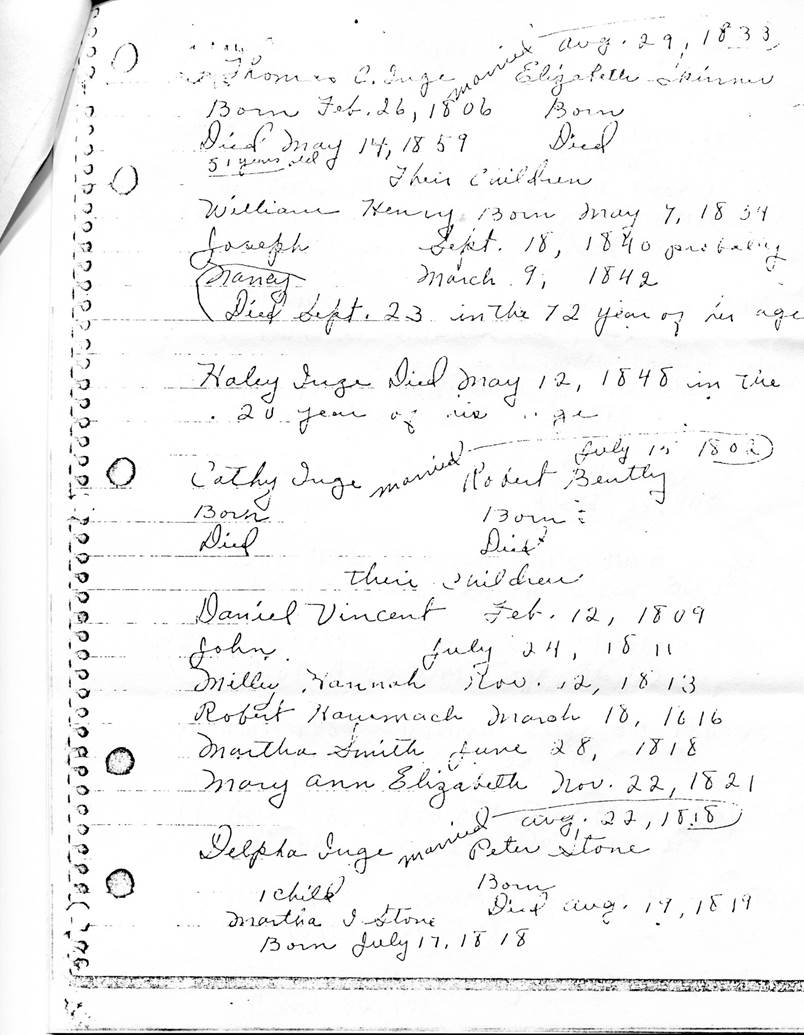 married Aug. 29, 1833
Thomas C. Inge Elizabeth Skinner
Born Feb. 26, 1806 Born
Died May 14, 1859 Died
51 years old
Their Children
William Henry Born May 7, 1834
Joseph Sept. 18, 1840 probably
Nancy March 9, 1842
Died Sept. 23 in the 72 year of his age
Haley Inge Died May 12, 1848 in the
20 year of his age
July 1802
Cathy Inge married Robert Bently
Born Born
Died Died
Their Children
Daniel Vincent Feb. 12, 1809
John July 24, 1811
Milley Hannah Nov. 12, 1813
Robert March 18, 1616
Martha Smith June 28, 1818
Mary Ann Elizabeth Nov. 22, 1821
Aug. 22, 1818
Delpha Inge married Peter Stone
1 child Born
Died Aug. 19, 1819
Martha I Stone
Born July 17, 1818